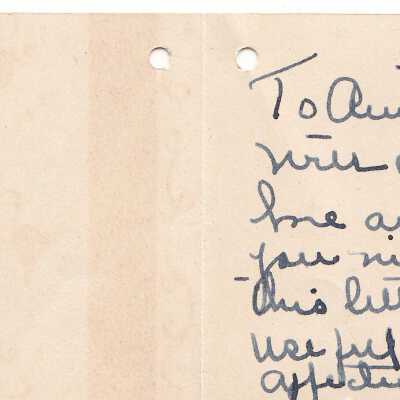 To Aun
with
love a
you
this litt
useful
affectio